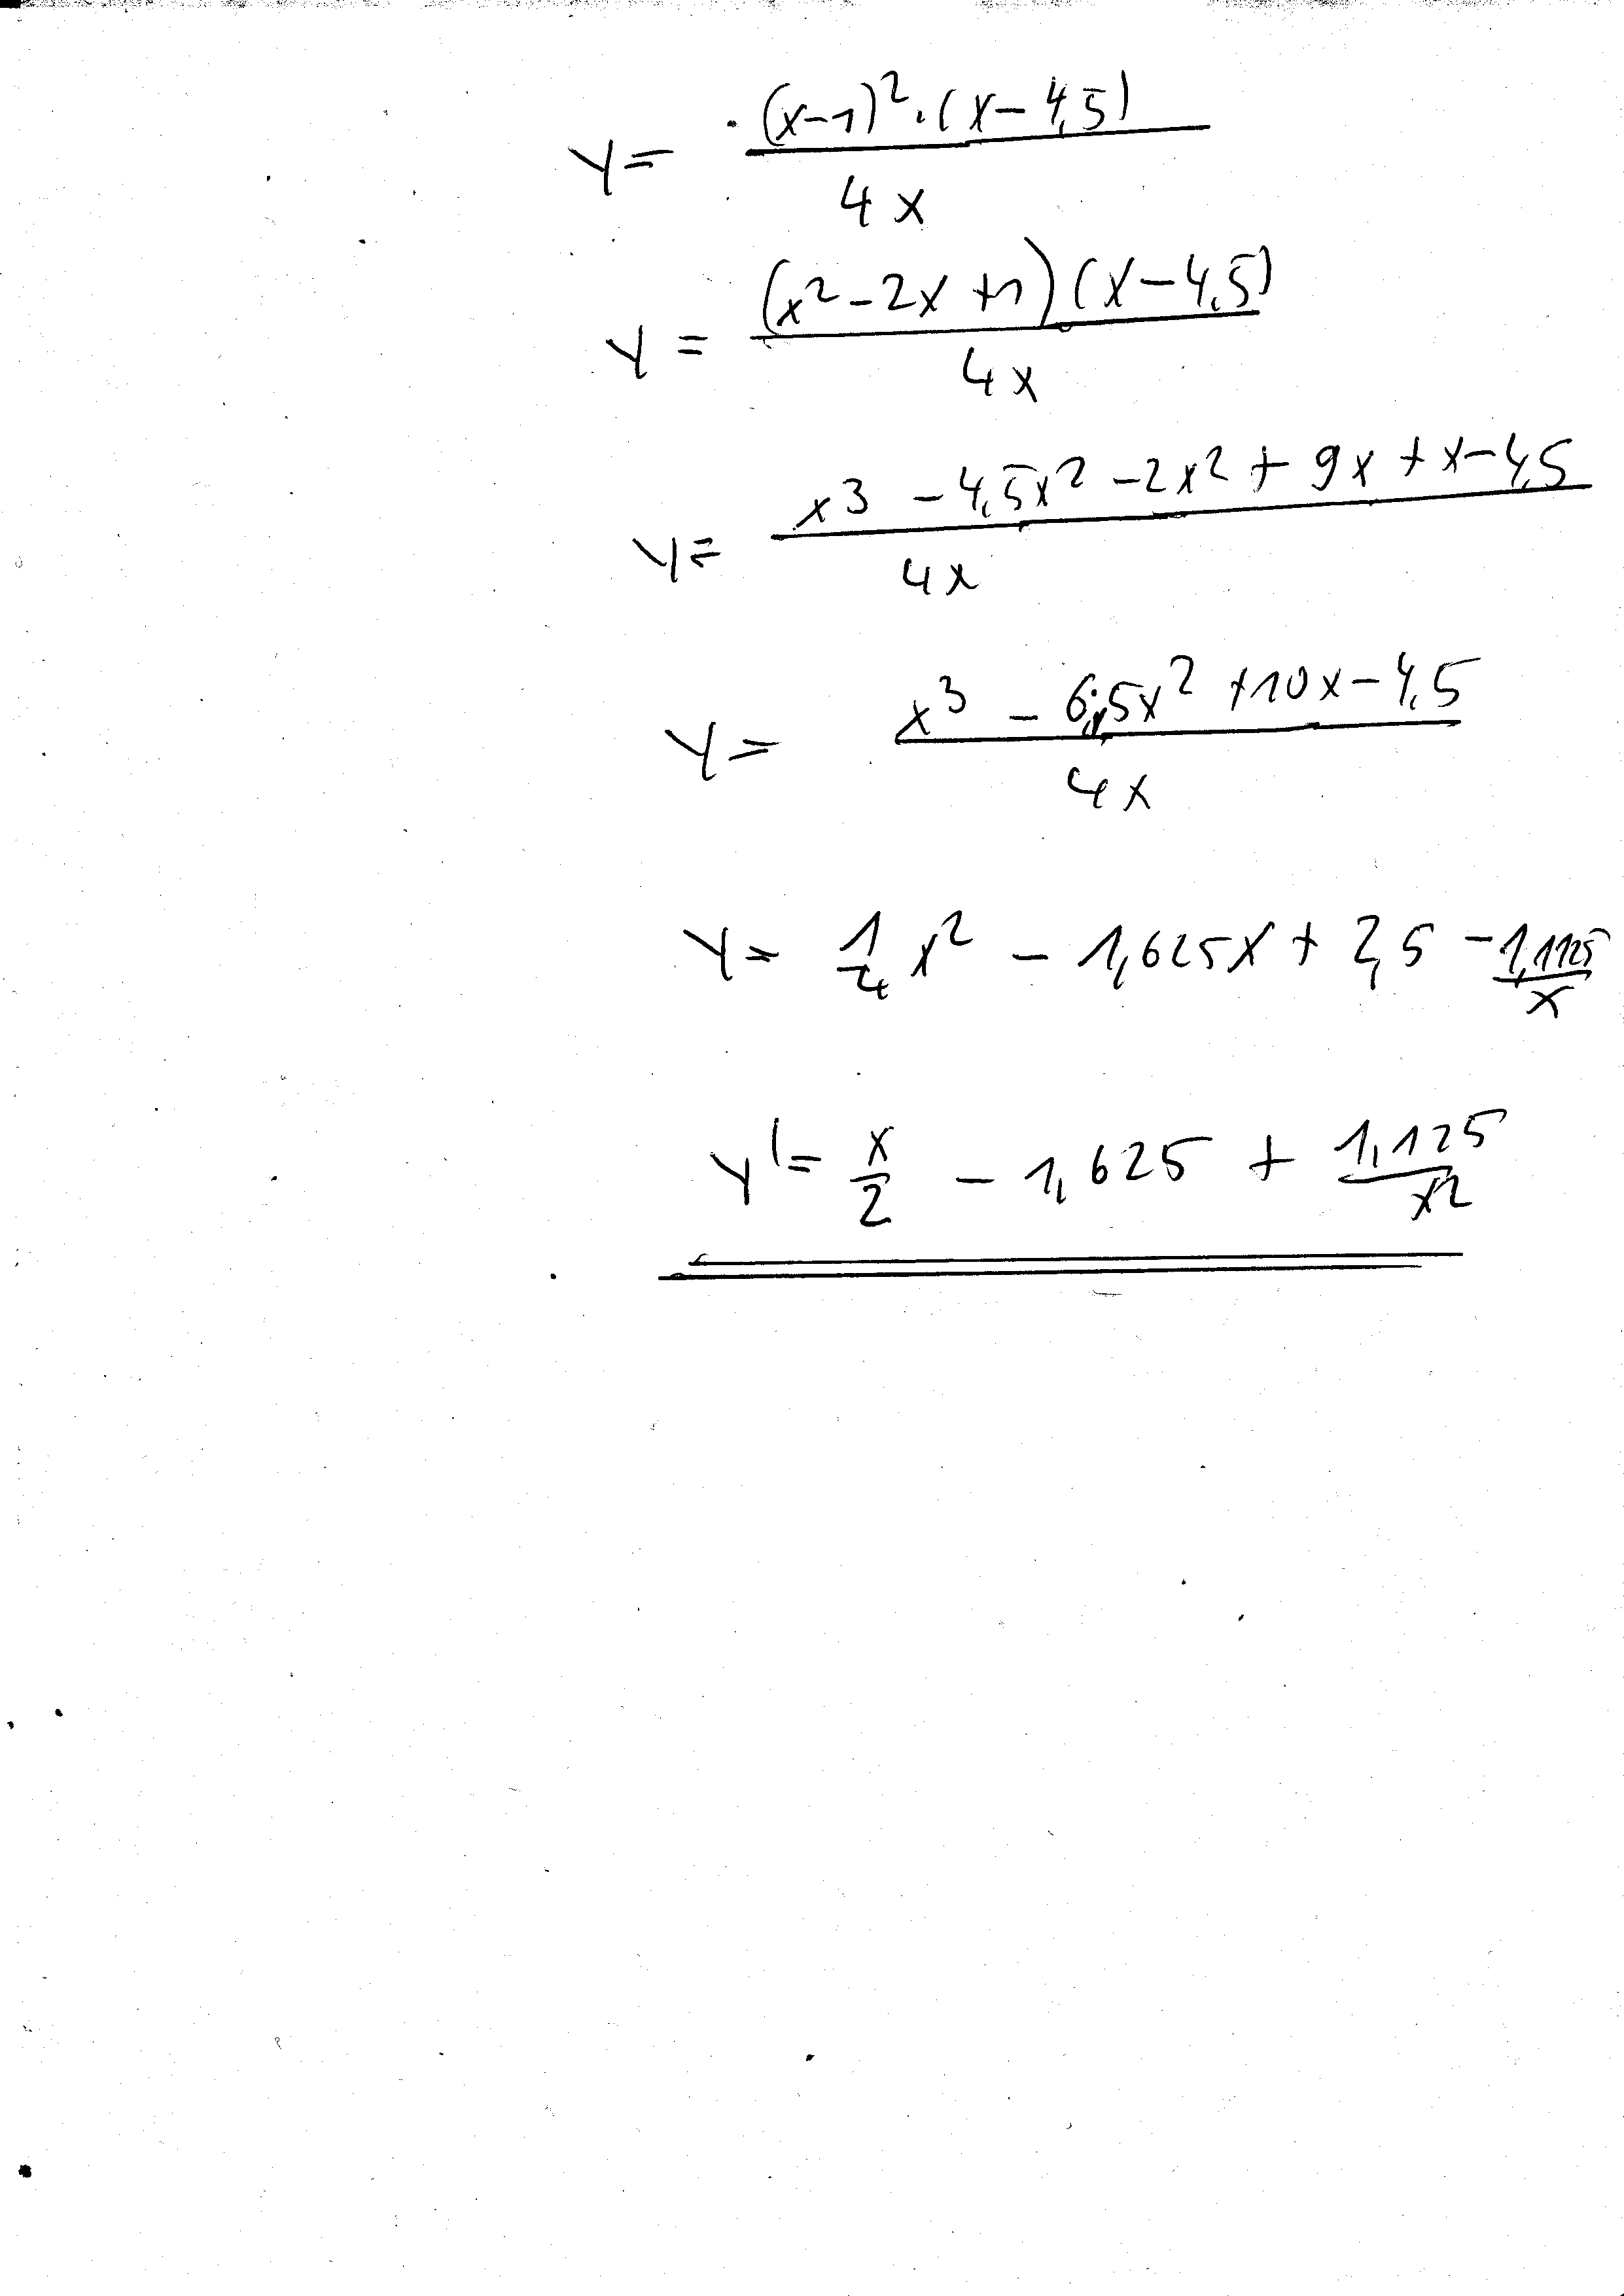 y = (x-1)²·(x-4,5) / 4x
y = (x²-2x+1)(x-4,5) / 4x
y = x³ - 4,5x² - 2x² + 9x + x - 4,5 / 4x
y = x³ - 6,5x² + 10x - 4,5 / 4x
y = 1/4 x² - 1,625x + 2,5 - 1,1125/x
y' = x/2 - 1,625 + 1,125/x²